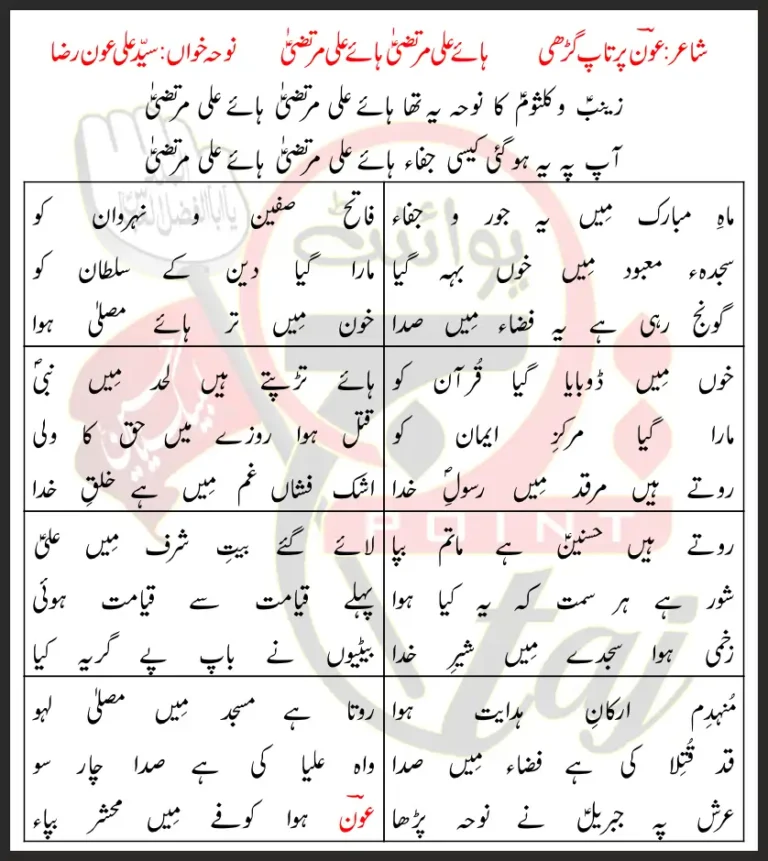 شاعر: عونؔ پرتاپ گڑھی ہائے علی مرتضیٰؑ ہائے علی مرتضیٰؑ نوحہ خواں: سیّد علی عون رضا
زینبؑ و کلثومؑ کا نوحہ یہ تھا ہائے علی مرتضیٰؑ ہائے علی مرتضیٰؑ
آپ پہ یہ ہو گئی کیسی جفاء ہائے علی مرتضیٰؑ ہائے علی مرتضیٰؑ
ماہِ مبارک میں یہ جور و جفاء
سجدہء معبود میں خوں بہہ گیا
گونج رہی ہے یہ فضاء میں صدا
فاتح صفین و نہروان کو
مارا گیا دین کے سلطان کو
خون میں تر ہائے مصلیٰ ہوا
خوں میں ڈوبایا گیا قُرآن کو
مارا گیا مرکزِ ایمان کو
روتے ہیں مرقد میں رسولِؐ خدا
ہائے تڑپتے ہیں لحد میں نبیؐ
قتل ہوا روزے میں حق کا ولی
اشک فشاں غم میں ہے خلقِ خدا
روتے ہیں حسنینؑ ہے ماتم بپا
شور ہے ہر سمت کہ یہ کیا ہوا
زخمی ہوا سجدے میں شیرِ خدا
لائے گئے بیتِ شرف میں علیؑ
پہلے قیامت سے قیامت ہوئی
بیٹیوں نے باپ پے گریہ کیا
مُنہدِم ارکانِ ہدایت ہوا
قد قُتِلا کی ہے فضاء میں صدا
عرش پہ جبریلؑ نے نوحہ پڑھا
روتا ہے مسجد میں مصلیٰ لہو
واہ علیا کی ہے صدا چار سو
عونؔ ہوا کوفے میں محشر بپاء
پوائنٹ
POINT
taj
یا ابا الفضل
لبیک یا حسین